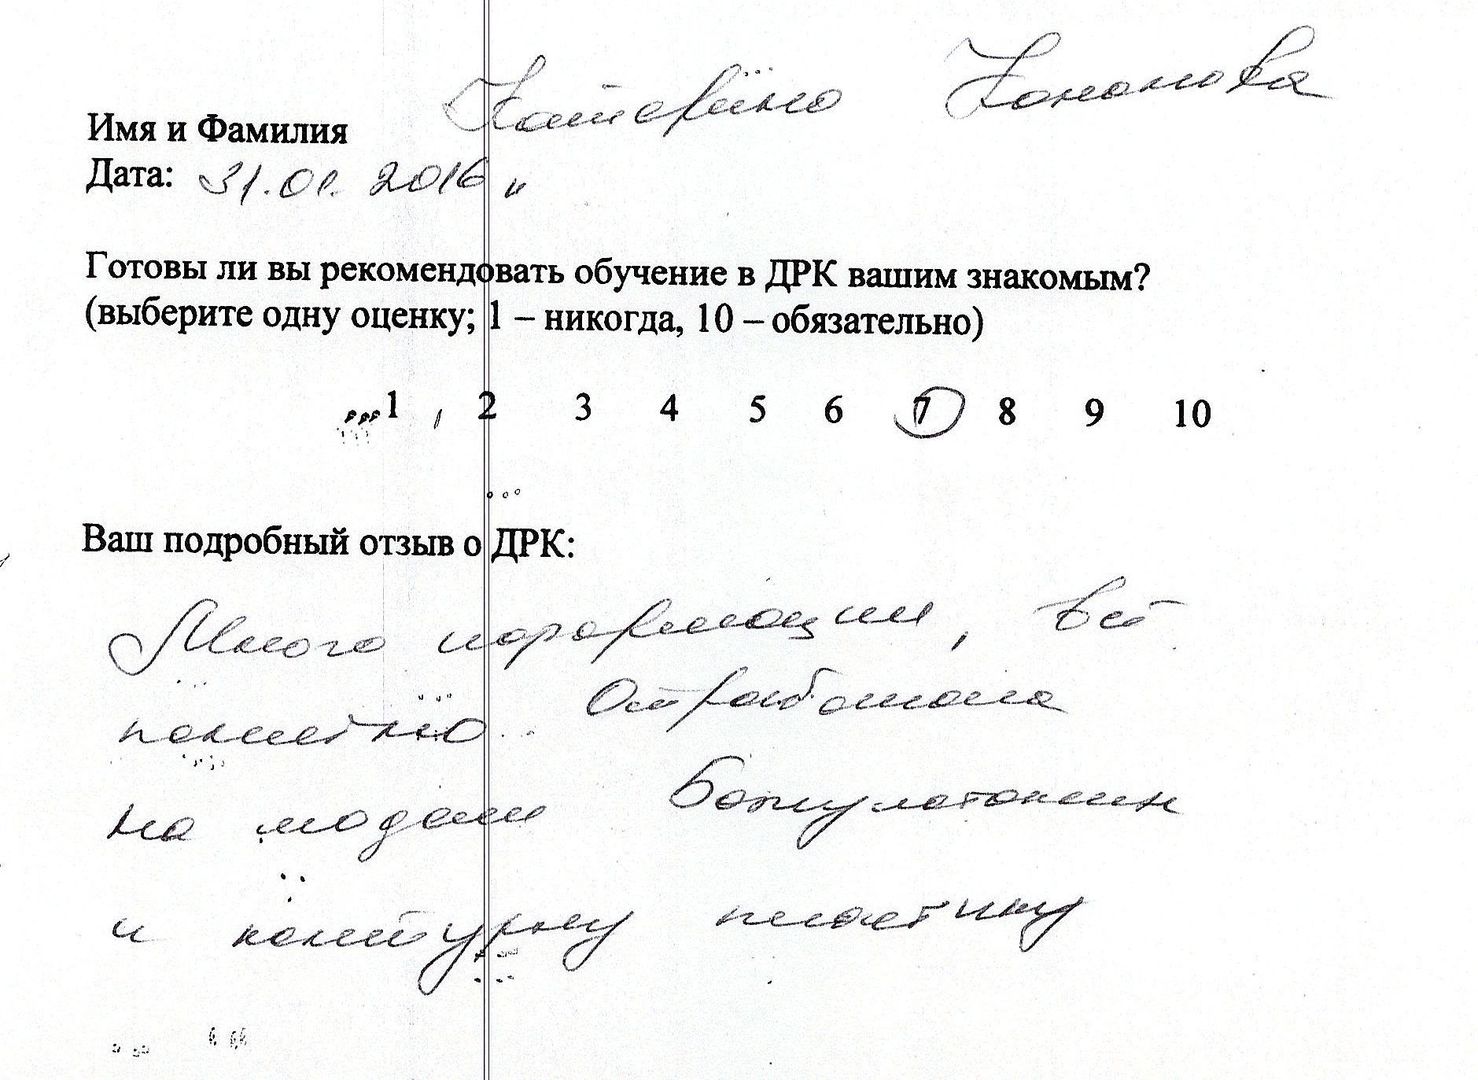 Катерина Кононова
Имя и Фамилия
Дата: 31.01.2016
Готовы ли вы рекомендовать обучение в ДРК вашим знакомым?
(выберите одну оценку; 1 – никогда, 10 – обязательно)
1 2 3 4 5 6 7 8 9 10
Ваш подробный отзыв о ДРК:
Много информации, всё
понятно. Отработала
на модели Ботулотоксин
и контурну пластику